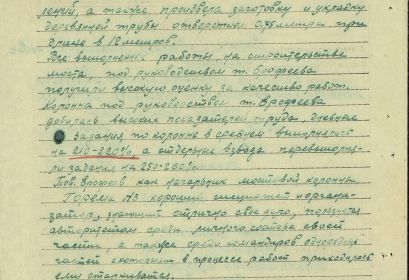 лений, а также произвела заготовку и укладку
деревянной трубы отверстием 0,75 метра при
длине в 12 метров.
Все выполненные работы на строительстве
моста, под руководством т. Ерофеева
получили высокую оценку за качество работ.
Колонна под руководством т. Ерофеева
добилась высоких показателей труда, дневные
задания по колонне в среднем выполнялись
на 210-220%, а отдельные взвода перевыполня-
ли задания на 250-280%.
Тов. Ерофеев как начальник мостовой колонны
Горема №3 хороший специалист и органи-
затор, знающий отлично свое дело, пользуется
авторитетом среди личного состава своей
части, а также среди командиров
частей с которыми в процессе работ приходилось
ему сталкиваться.